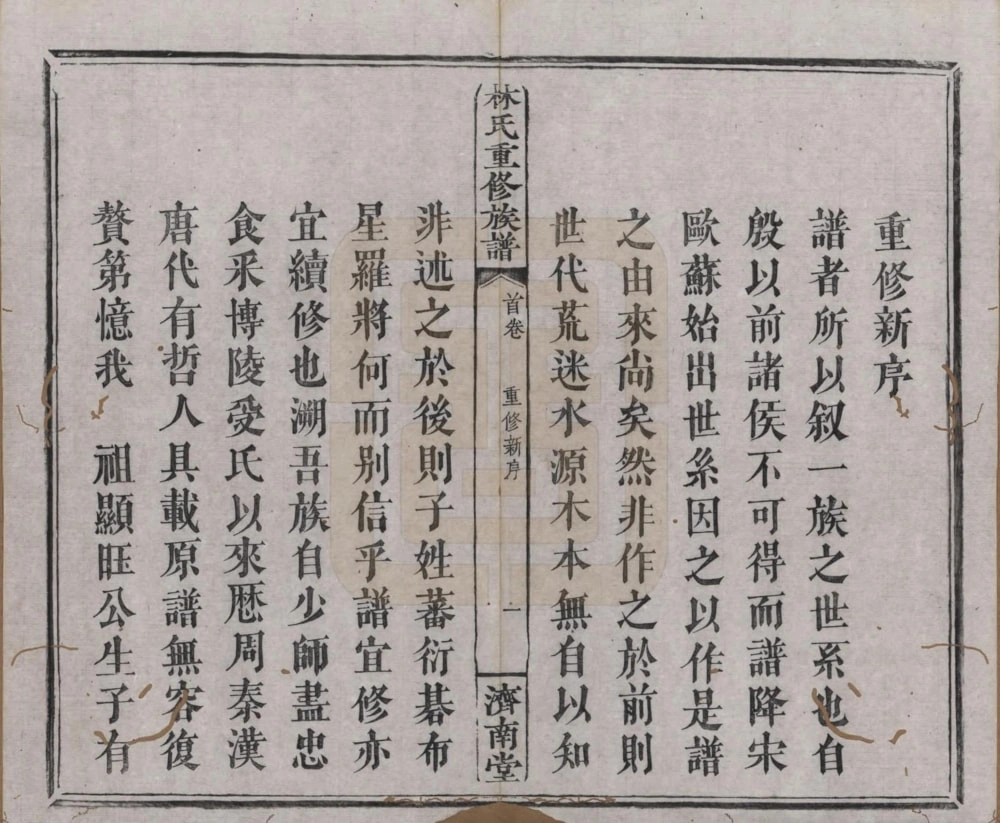 重修新序
譜者所以叙一族之世系也自
殷以前諸侯不可得而譜降宋
歐蘇始出世系因之以作是譜
之由來尚矣然非作之於前則
世代荒迷水源木本無自以知
林氏重修族譜 首卷 重修新序 一 濟南堂
非述之於後則子姓蕃衍碁布
星羅將何而别信乎譜宜修亦
宜續修也溯吾族自少師盡忠
食采博陵受氏以來歷周秦漢
唐代有哲人具載原譜無容復
贅第憶我 祖顯旺公生子有